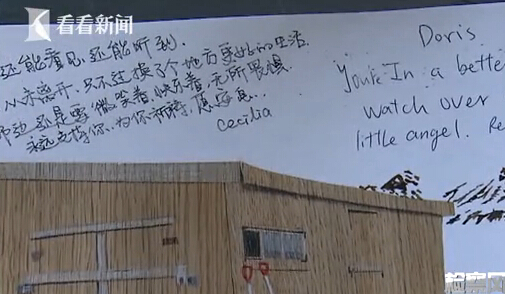 看看新闻
还能看见,还能听到.
从未离开,只不过换了个地方更好的生活.
那边还是要微笑着,快乐着,无所畏惧.
永远支持你,为你祈祷,愿安息...
Cecilia
Doris
You're In a bette
watch over
little angel. Re